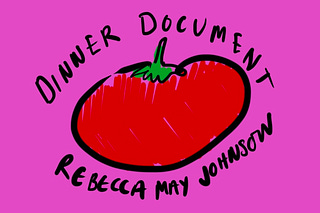 DINNER DOCUMENT
REBECCA MAY JOHNSON